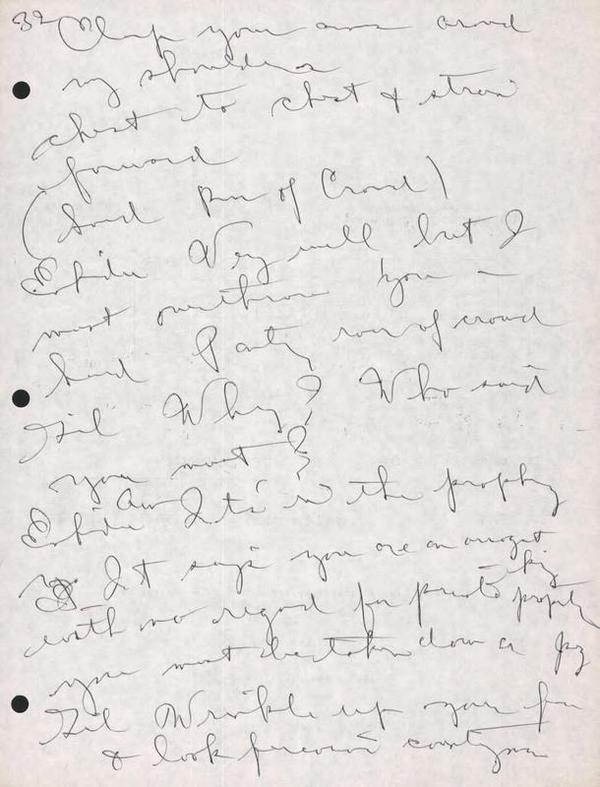 32 Clasp your arms around
my shoulders
chest to chest & strain
forward
(Sound Run of Crowd)
Enkidu Very well but I
must overthrow you —
Sound Party roar of crowd
Gil Why? Who said
you must?
Enkidu It's in the prophsy
It says you are an arrogant
king
with no regard for private property
you must be taken down a peg
Gil Wrinkle up your
& look ferocious